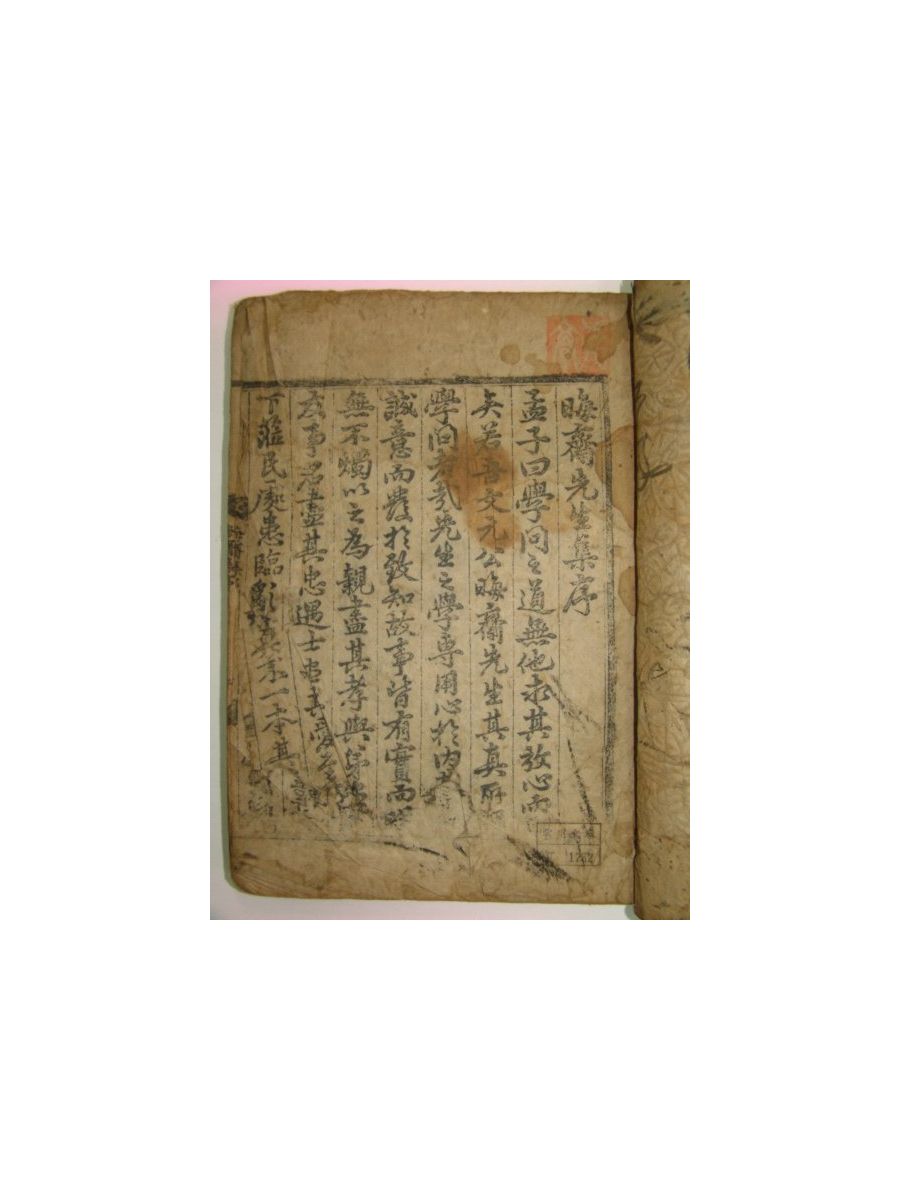 晦齋先生集序
孟子曰學问之道無他求其放心而
矣若吾文元公晦齋先生其真所
學问者哉先生之學専用心於内
誠意而發於致知故事皆有實而
無不燭以之為親盡其孝與
君盡其忠遇士
下莅民處患臨一本其
1262